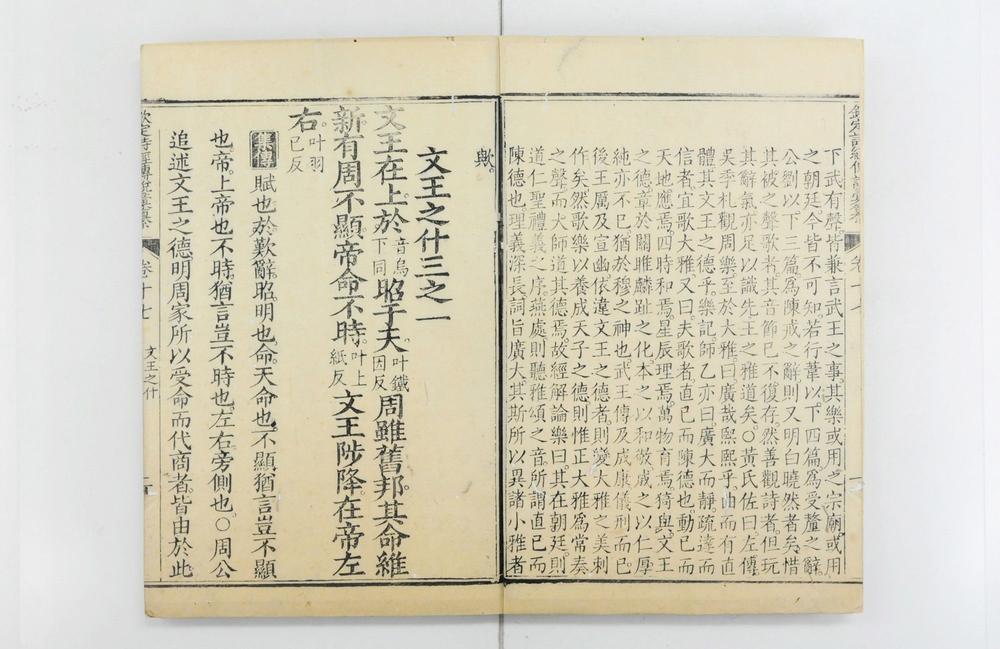 下武有聲。皆兼言武王之事。其樂或用之宗廟。或用
之朝廷。今皆不可知。若行葦以下四篇。爲受釐之辭。
公劉以下三篇。爲陳戒之辭。則又明白曉然者矣。惜
其被之聲歌者。其音節已不復存。然善觀詩者。但玩
其辭氣。亦足以識先王之雅道矣。〇黃氏佐曰。左傳。
吳季札觀周樂。至於大雅。曰。廣哉熙熙乎。曲而有直
體。其文王之德乎。樂記。師乙亦曰。廣大而靜。疏達而
信者。宜歌大雅。又曰。夫歌者。直已而陳德也。動已而
天地應焉。四時和焉。星辰理焉。萬物育焉。猗與。文王
之德。章於關雎麟趾之化。本之以和敬。成之以仁厚。
純亦不已。猶於穆之神也。武王傳及成康。儀刑而已。
後王厲及宣幽。依違文王之德者。則變大雅之美刺
作矣。然歌樂以養成天子之德。則惟正大雅爲常奏
之聲。而大師道其德焉。故經解論樂曰。其在朝廷。則
道仁聖禮義之序。燕處則聽雅頌之音。所謂直已而
陳德也。理義深長。詞旨廣大。其斯所以異諸小雅者
歟。
欽定詩經傳說彙纂 卷十七
文王之什三之一
文王在上。於音烏下同昭于天。叶鐵因反周雖舊邦。其命維
新。有周不顯。帝命不時。叶上紙反文王陟降。在帝左
右。叶羽已反
集傳 賦也。於。歎辭。昭。明也。命。天命也。不顯。猶言豈不顯
也。帝。上帝也。不時。猶言豈不時也。左右。旁側也。〇周公
追述文王之德。明周家所以受命而代商者。皆由於此。
欽定詩經傳說彙纂 卷十七 文王之什